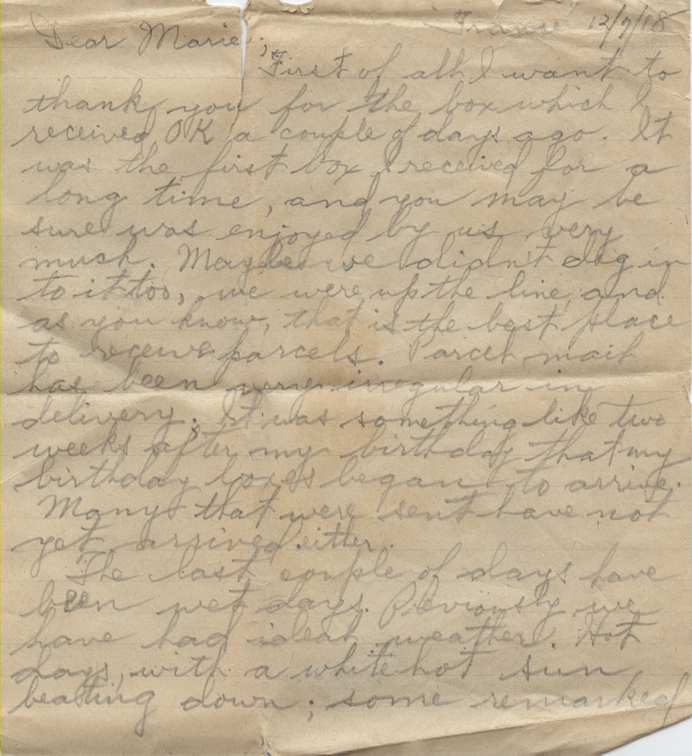 France 12/7/18
Dear Marie;
First of all I want to
thank you for the box which I
received OK a couple of days ago. It
was the first box I received for a
long time, and you may be
sure was enjoyed by us very
much. Maybe we didn't dig in
to it too, we were up the line, and
as you know, that is the best place
to receive parcels. Parcel mail
has been very irregular in
delivery. It was something like two
weeks after my birthday that my
birthday boxes began to arrive.
Many that were sent have not
yet arrived either.
The last couple of days have
been wet days. Previously we
have had ideal weather. Hot
days, with a white hot sun
beating down; some remarked